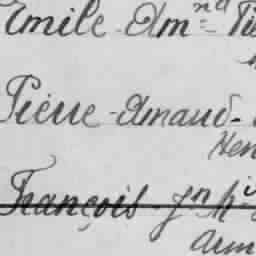 Emile Am<sup>nd</sup>
Pierre Amaud-
Hen
François Jn
Arm